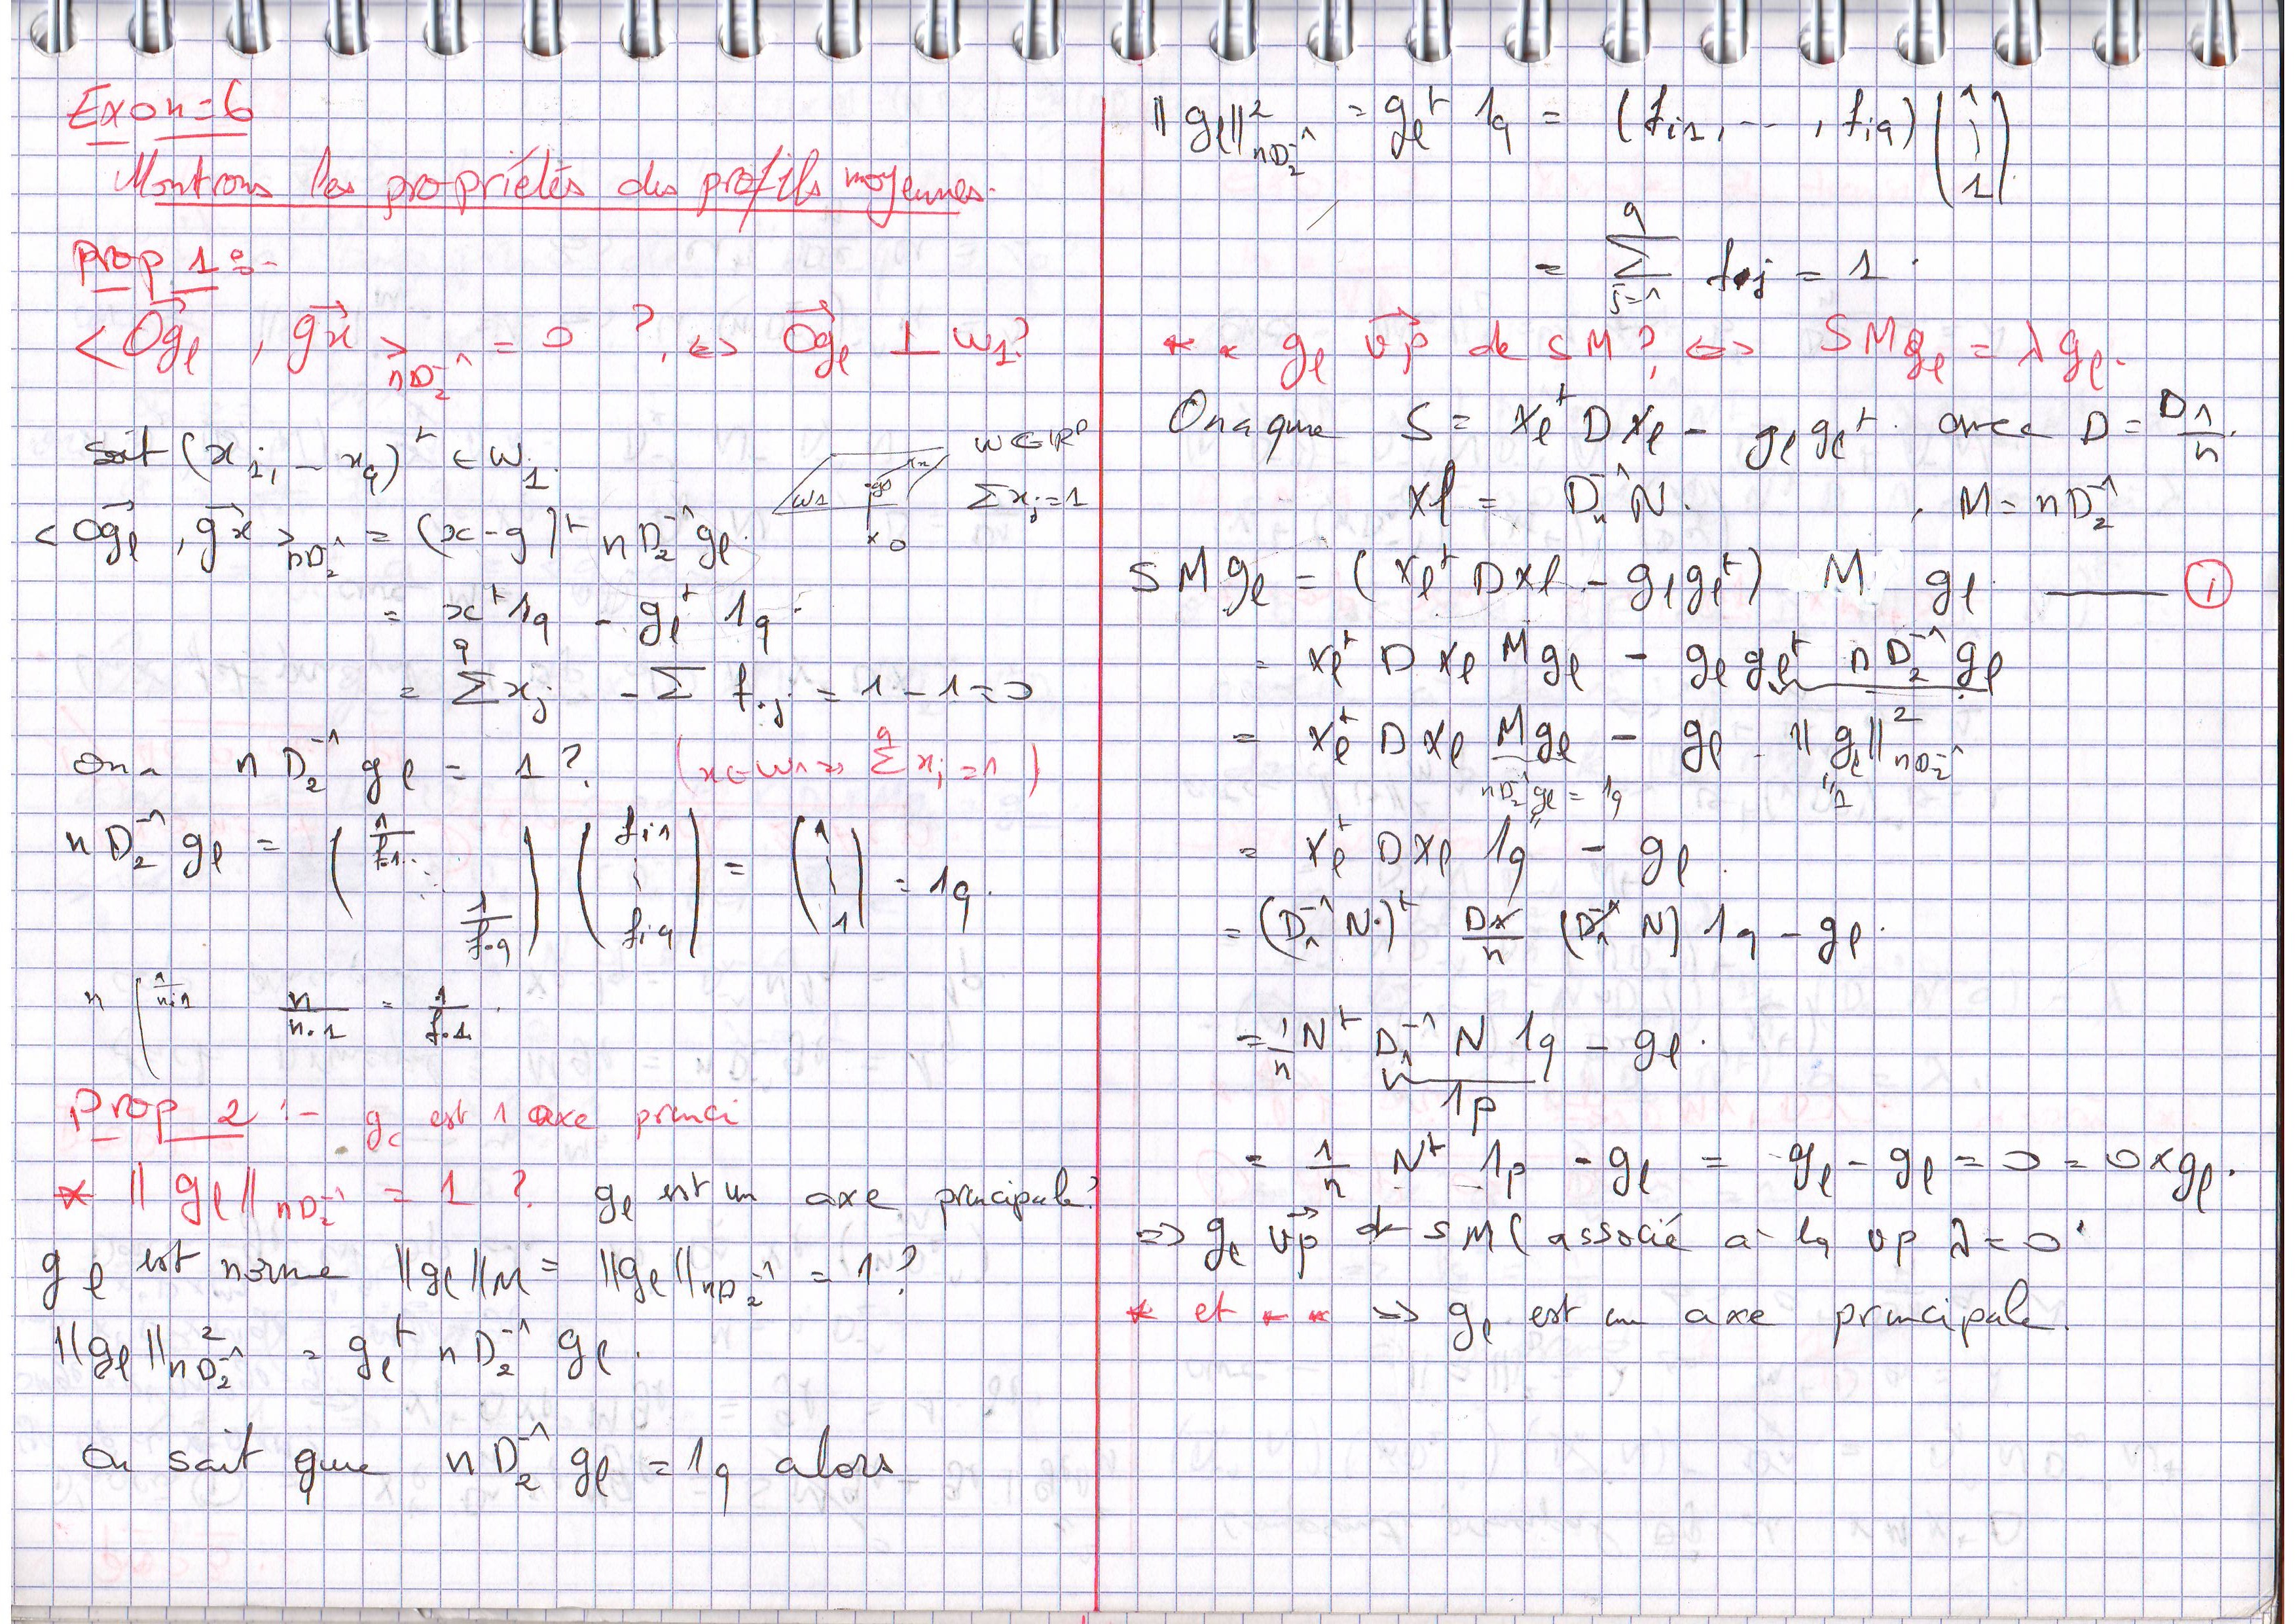 Exo n=6
Montrons les propriétés des profils moyennes.
Prop 1 :-
< Og⃗ₗ , gx⃗ >_{nD₂⁻¹} = 0 ?, <=> Og⃗ₗ ⊥ W₁?
Soit (x₁, - x_q)ᵗ ∈ W₁.
W ∈ IRᵖ
W1
Σ xⱼ = 1
x 0
< Og⃗ₗ , gx⃗ >_{nD₂⁻¹} = (x - g)ᵗ n D₂⁻¹ gₗ.
= xᵗ 1_q - gₗᵗ 1_q.
= Σ^q xⱼ - Σ f.ⱼ = 1 - 1 = 0
On a n D₂⁻¹ gₗ = 1 ? (x ∈ W₁ => Σ^q xⱼ = 1)
n D₂⁻¹ gₗ = (1/f.1 ⋱ 1/f.q) (fi1 ⋮ fiq) = (1 ⋮ 1) = 1_q.
n ( 1/n.1 n/n.1 = 1/f.1.
Prop 2 :- g_c est 1 axe princi
* || gₗ ||_{nD₂⁻¹} = 1 ? gₗ est un axe principale?
gₗ est norme ||gₗ||_M = ||gₗ||_{nD₂⁻¹} = 1 ?
||gₗ||²_{nD₂⁻¹} = gₗᵗ n D₂⁻¹ gₗ.
On sait que n D₂⁻¹ gₗ = 1_q alors
|| gₗ ||²_{nD₂⁻¹} = gₗᵗ 1_q = (fi1, -- , fiq) (1 ⋮ 1)
= Σ_{j=1}^q f.j = 1.
* * gₗ vp⃗ de SM ?, <=> SM gₗ = λ gₗ.
On a que S = Xₗᵗ D Xₗ - gₗ gₗᵗ. avec D = D₁/n.
Xₗ = D₁⁻¹ N. , M = n D₂⁻¹
S M gₗ = (Xₗᵗ D Xₗ - gₗ gₗᵗ) M gₗ —— ①
= Xₗᵗ D Xₗ M gₗ - gₗ gₗᵗ n D₂⁻¹ gₗ
= Xₗᵗ D Xₗ M gₗ - gₗ . || gₗ ||²_{nD₂⁻¹}
nD₂⁻¹ gₗ = 1_q " 1
= Xₗᵗ D Xₗ 1_q - gₗ.
= (D₁⁻¹ N.)ᵗ D₁/n (D₁⁻¹ N) 1_q - gₗ.
= 1/n Nᵗ D₁⁻¹ N 1_q - gₗ.
1p
= 1/n Nᵗ 1p - gₗ = gₗ - gₗ = 0 = 0 x gₗ.
=> gₗ vp⃗ de SM ( associé a la vp λ = 0.
* et * * => gₗ est un axe principale.